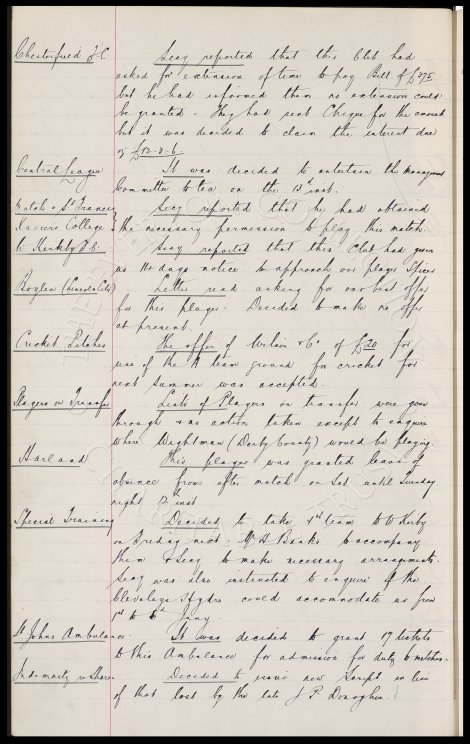 Chesterfield F.C. Secy reported that this Club had
asked for extension of time to pay Bill of £275
but he had informed them no extension could
be granted - They had sent Cheque for the amount
but it was decided to claim the interest due
of £12-8-6.
Central League It was decided to entertain the Management
Committee to tea on the 13 inst.
Match v St Francis Secy reported that he had obtained
Xaviers College the necessary permission to play this match.
W Kirkby F.C. Secy reported that this Club had given
us 14 days notice to approach our player Spicer
Boylen (Lincoln City) Letter read asking for our best offer
for this player. Decided to make no offer
at present
Cricket Pitches The offer of Wilson & Co of £20 for
use of the A team ground for cricket for
next summer was accepted.
Players on Transfer Lists of Players on transfer were gone
through & no action taken except to enquire
where Wightman (Derby County) would be playing.
Harland This player was granted leave of
absence from after match on Sat until Tuesday
night 12th inst
Special Training Decided to take 1st team to
on Friday next. Mr A Banks to accompany
them & Secy to make necessary arrangements.
Secy was also instructed to enquire if the
Cleveleys Hydro could accommodate us from
1st to Jany.
St Johns Ambulance. It was decided to grant 17 tickets
to this Ambulance for admission for duty to matches.
Indemnity re Shares Decided to issue new Script in lieu
of that lost by the late J P. Donoghue.